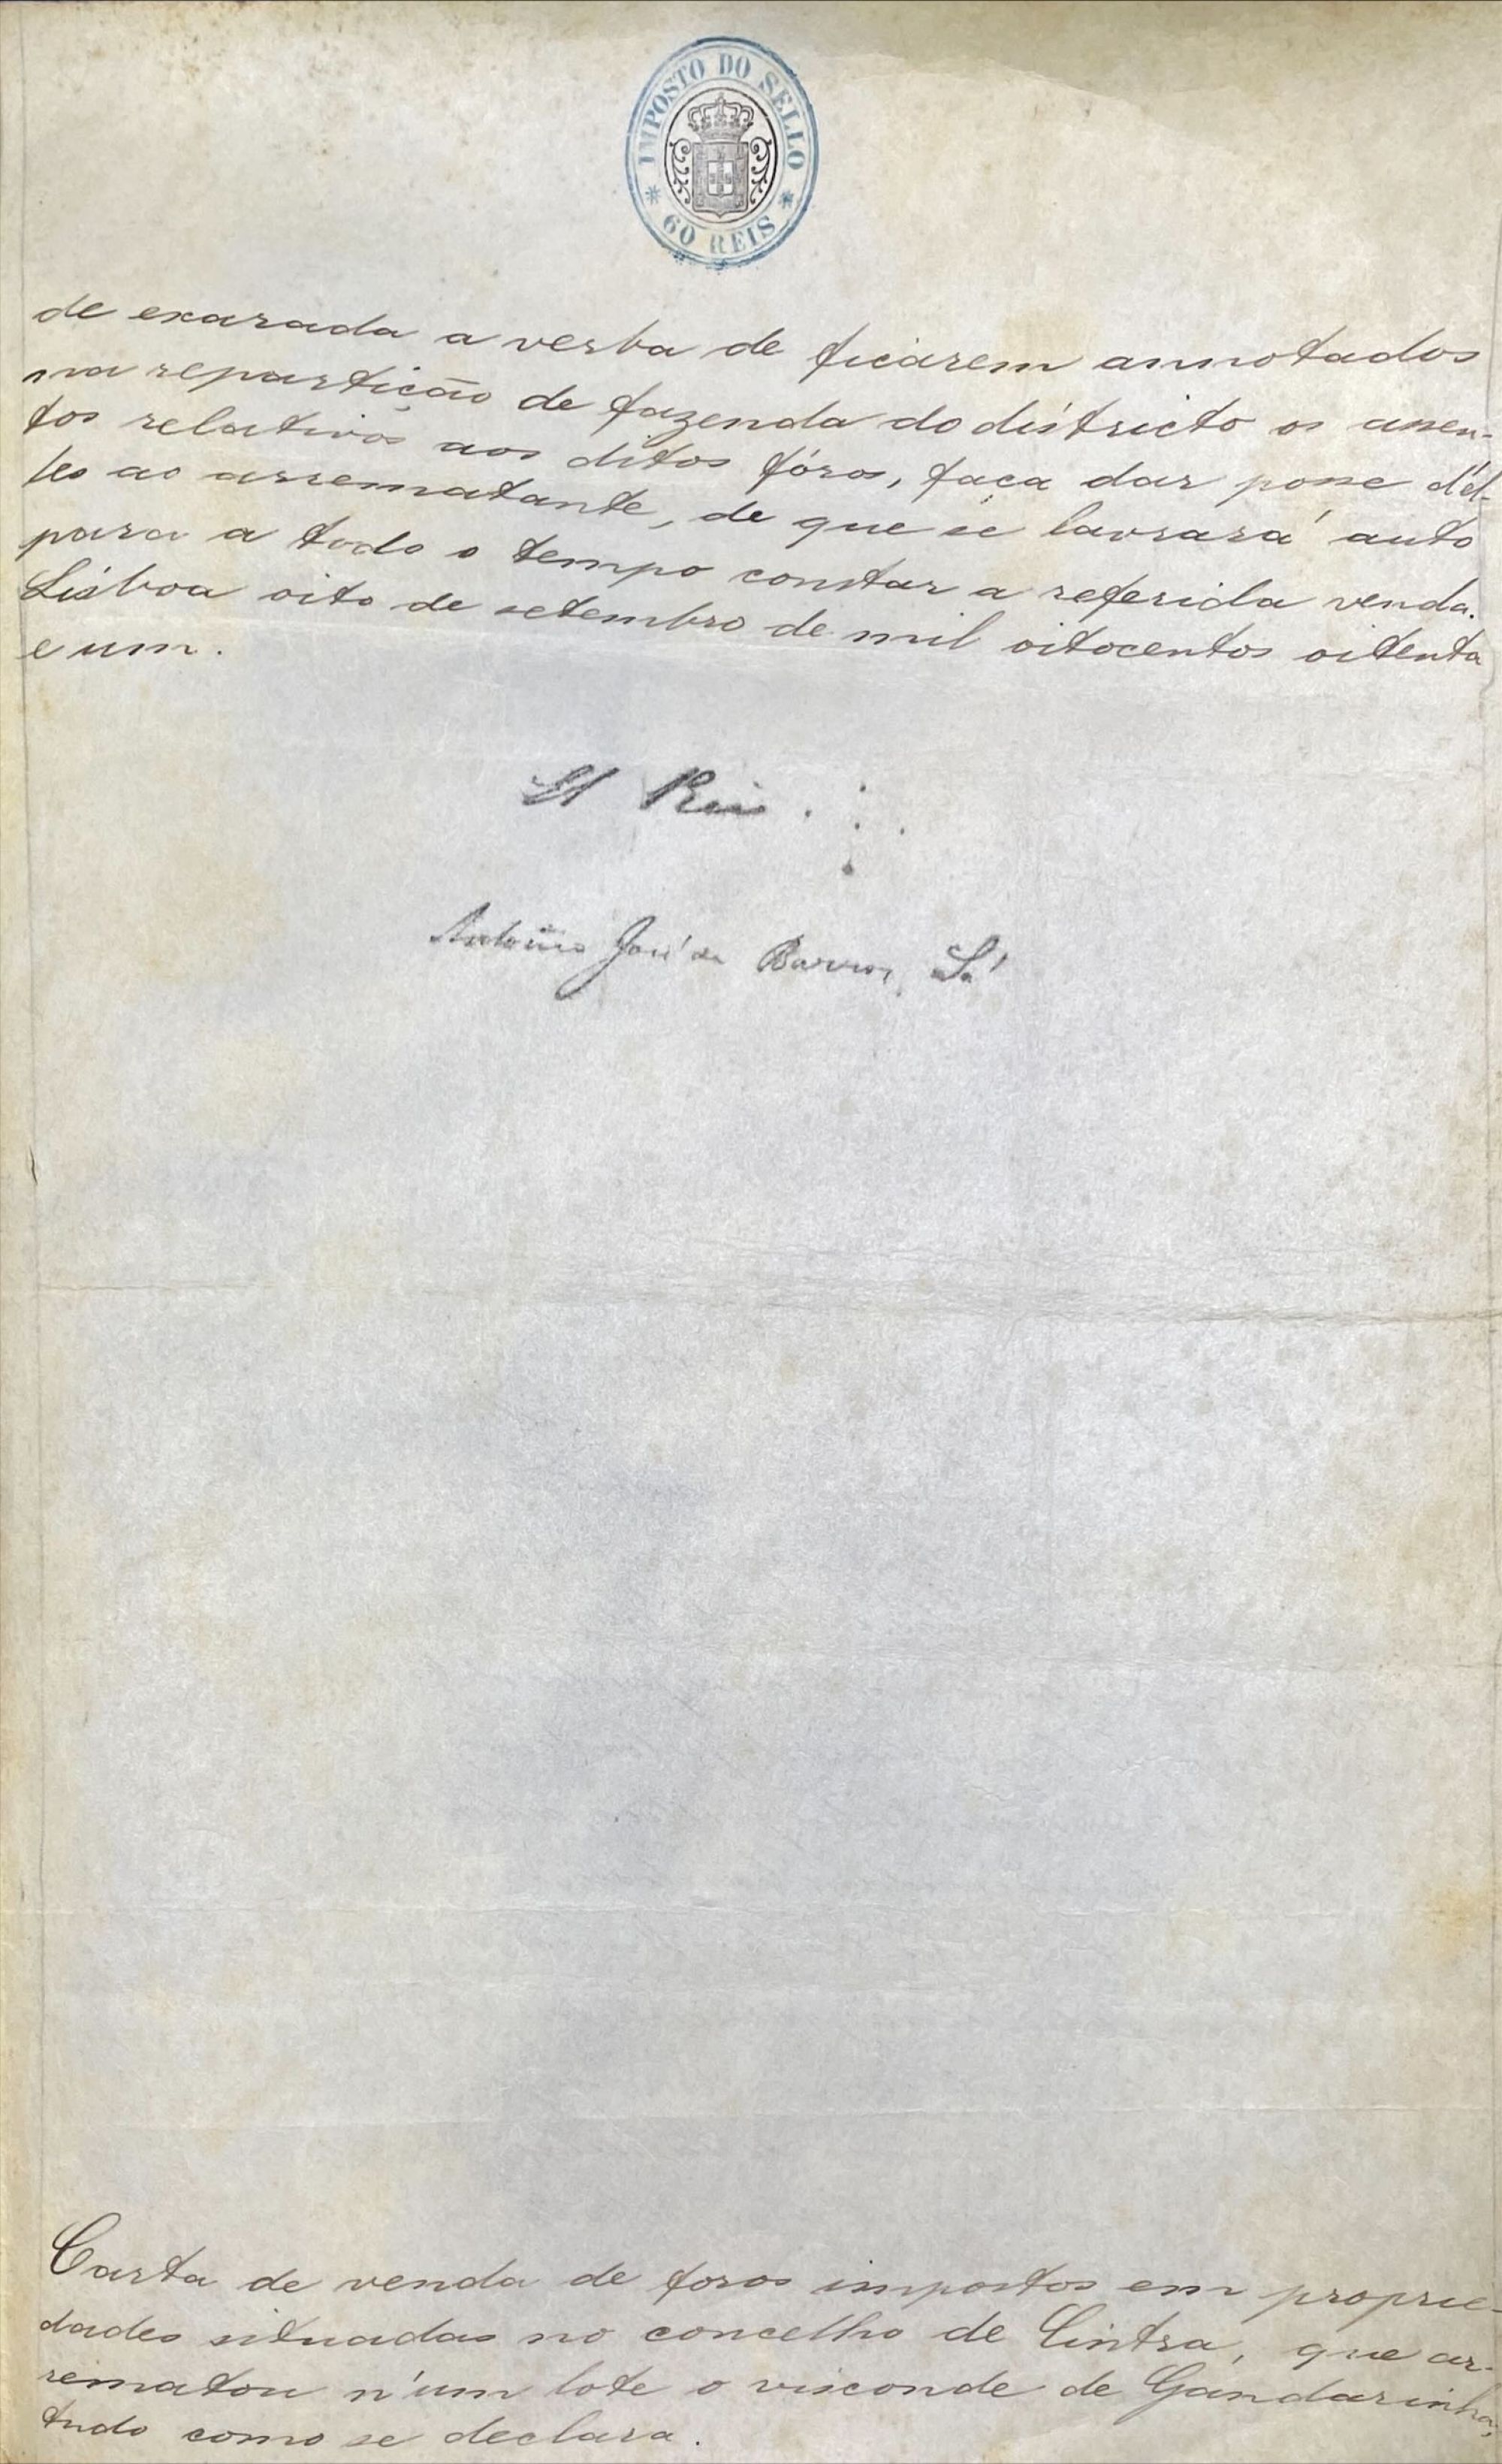 IMPOSTO DO SELLO
* 60 REIS *
de exarada a verba de ficarem annotados
na repartição de fazenda do districto os assen-
tos relativos aos ditos fóros, faça dar posse d'el-
les ao arrematante, de que se lavrará auto
para a todo o tempo constar a referida venda.
Lisboa oito de setembro de mil oitocentos oitenta
e um.
El Rei
Antonio José de Barros Sá
Carta de venda de foros impostos em proprie-
dades situadas no concelho de Cintra, que ar-
rematou n'um lote o visconde de Gandarinha,
tudo como se declara.